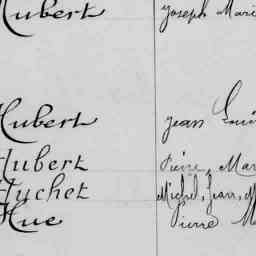 Hubert Joseph Mari
Hubert Jean Loui
Hubert Pierre, Mar
Huchet Michel, Jean, M
Hue Pierre M